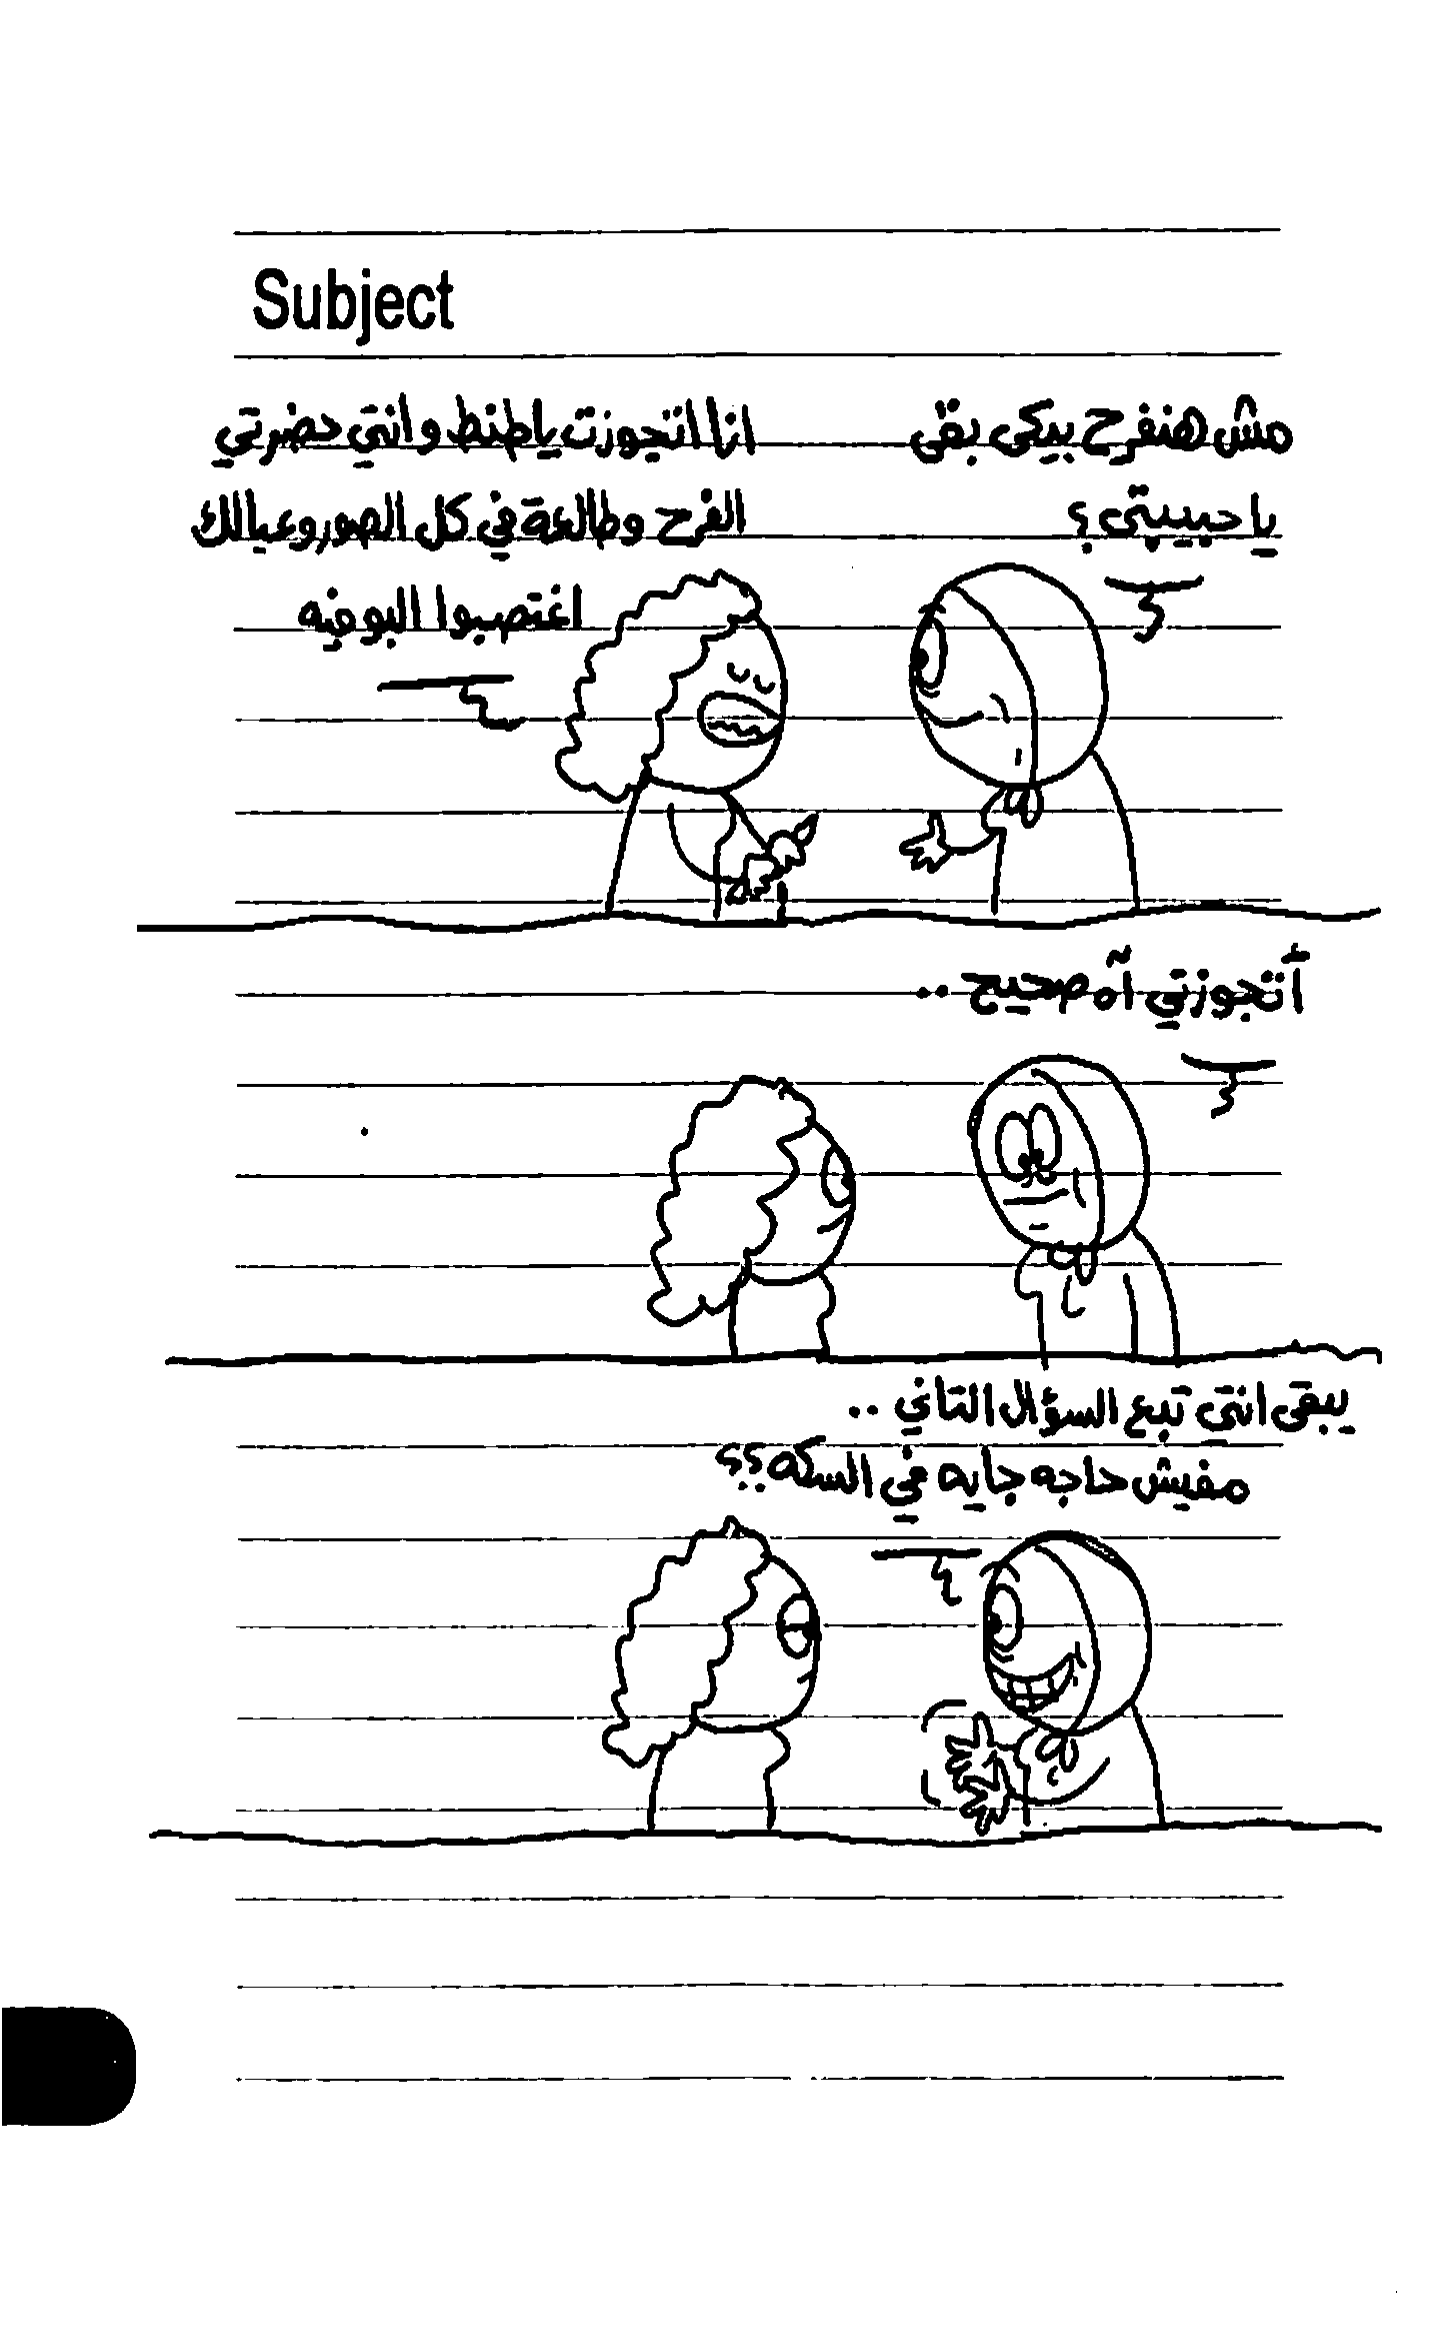 Subject
مش هنفرح بيكى بقى
يا حبيبتى؟
انا اتجوزت ياطنط وانتي حضرتي
الفرح وطالعة في كل الصور وعيالك
اغتصبوا البوفيه
أتجوزتي آه صحيح ..
يبقى انتي تبع السؤال التاني ..
مفيش حاجه جايه في السكه؟؟